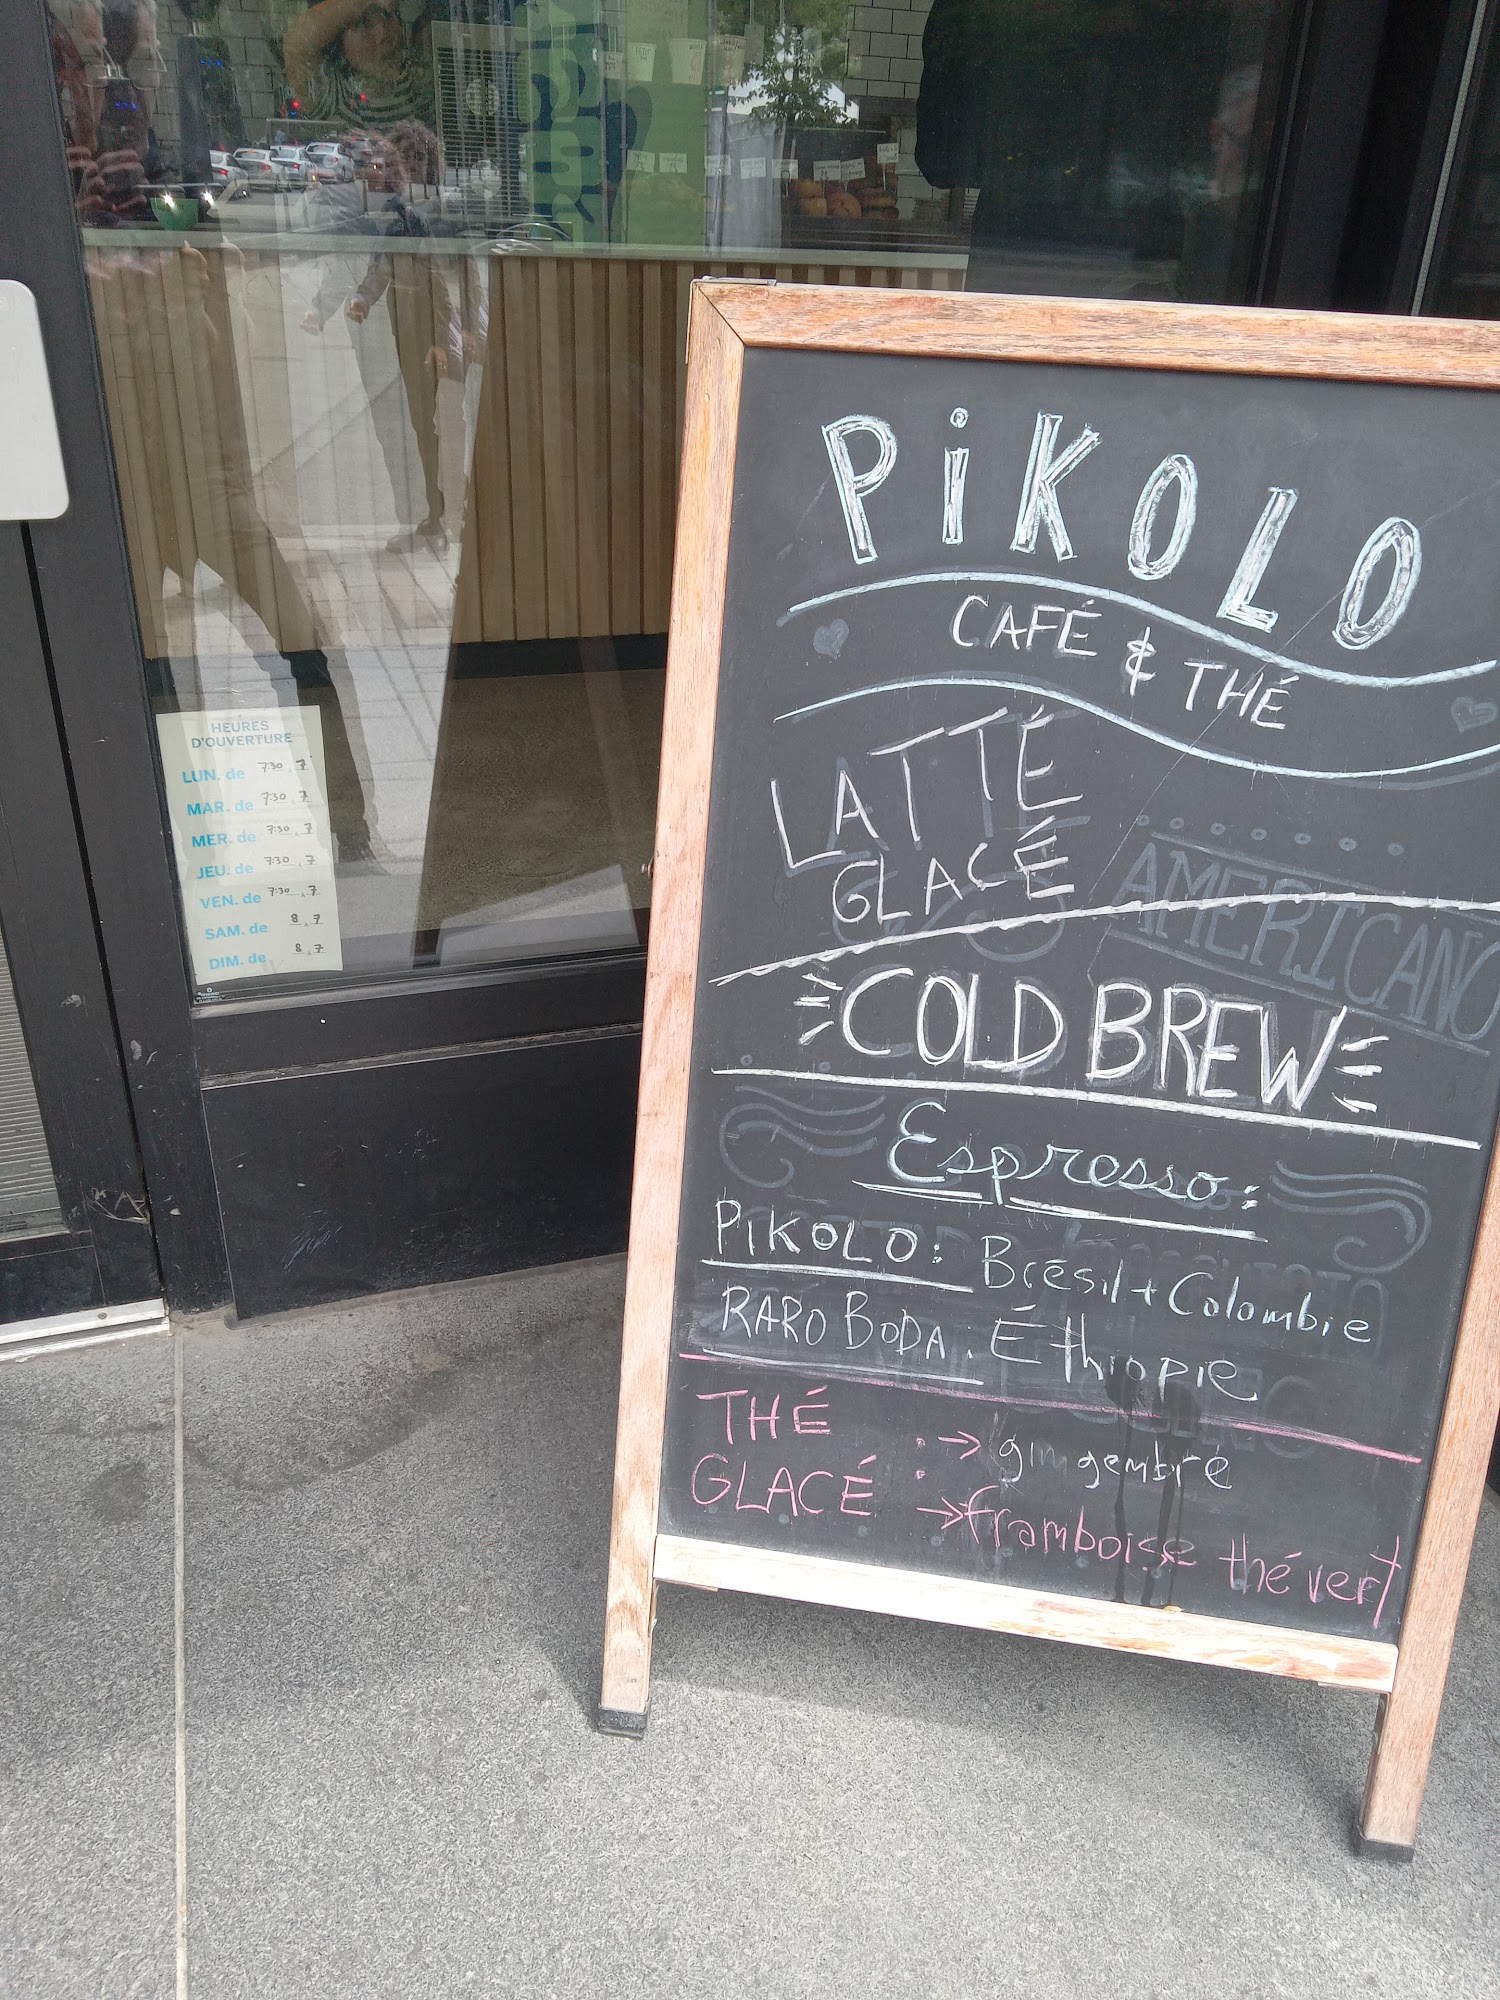 HEURES
D'OUVERTURE
LUN. de 7:30 à 7
MAR. de 7:30 à 7
MER. de 7:30 à 7
JEU. de 7:30 à 7
VEN. de 7:30 à 7
SAM. de 8 à 7
DIM. de 8 à 7
PiKOLO
CAFÉ & THÉ
LATTÉ
GLACÉ
AMERICANO
COLD BREW
Espresso:
PIKOLO: Brésil + Colombie
RARO BODA: Éthiopie
THÉ
GLACÉ : → gingembre
→ framboise thé vert